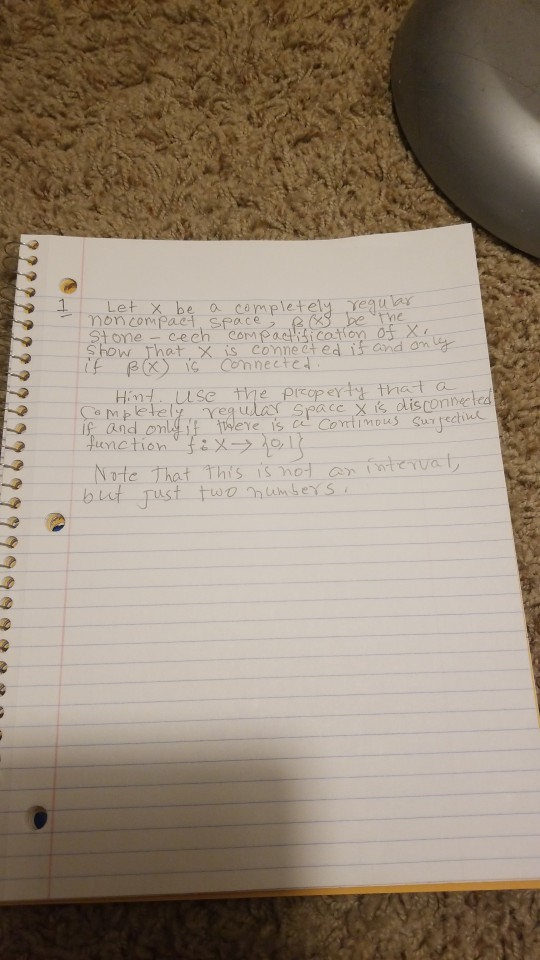 1 Let X be a completely regular
noncompact space, β(X) be the
Stone - cech compactification of X.
show that X is connected if and only
if β(X) is connected.
Hint. use the property that a
completely regular space X is disconnected
if and only if there is a continous surjective
function f: X → {0,1}
Note that this is not an interval,
but just two numbers.